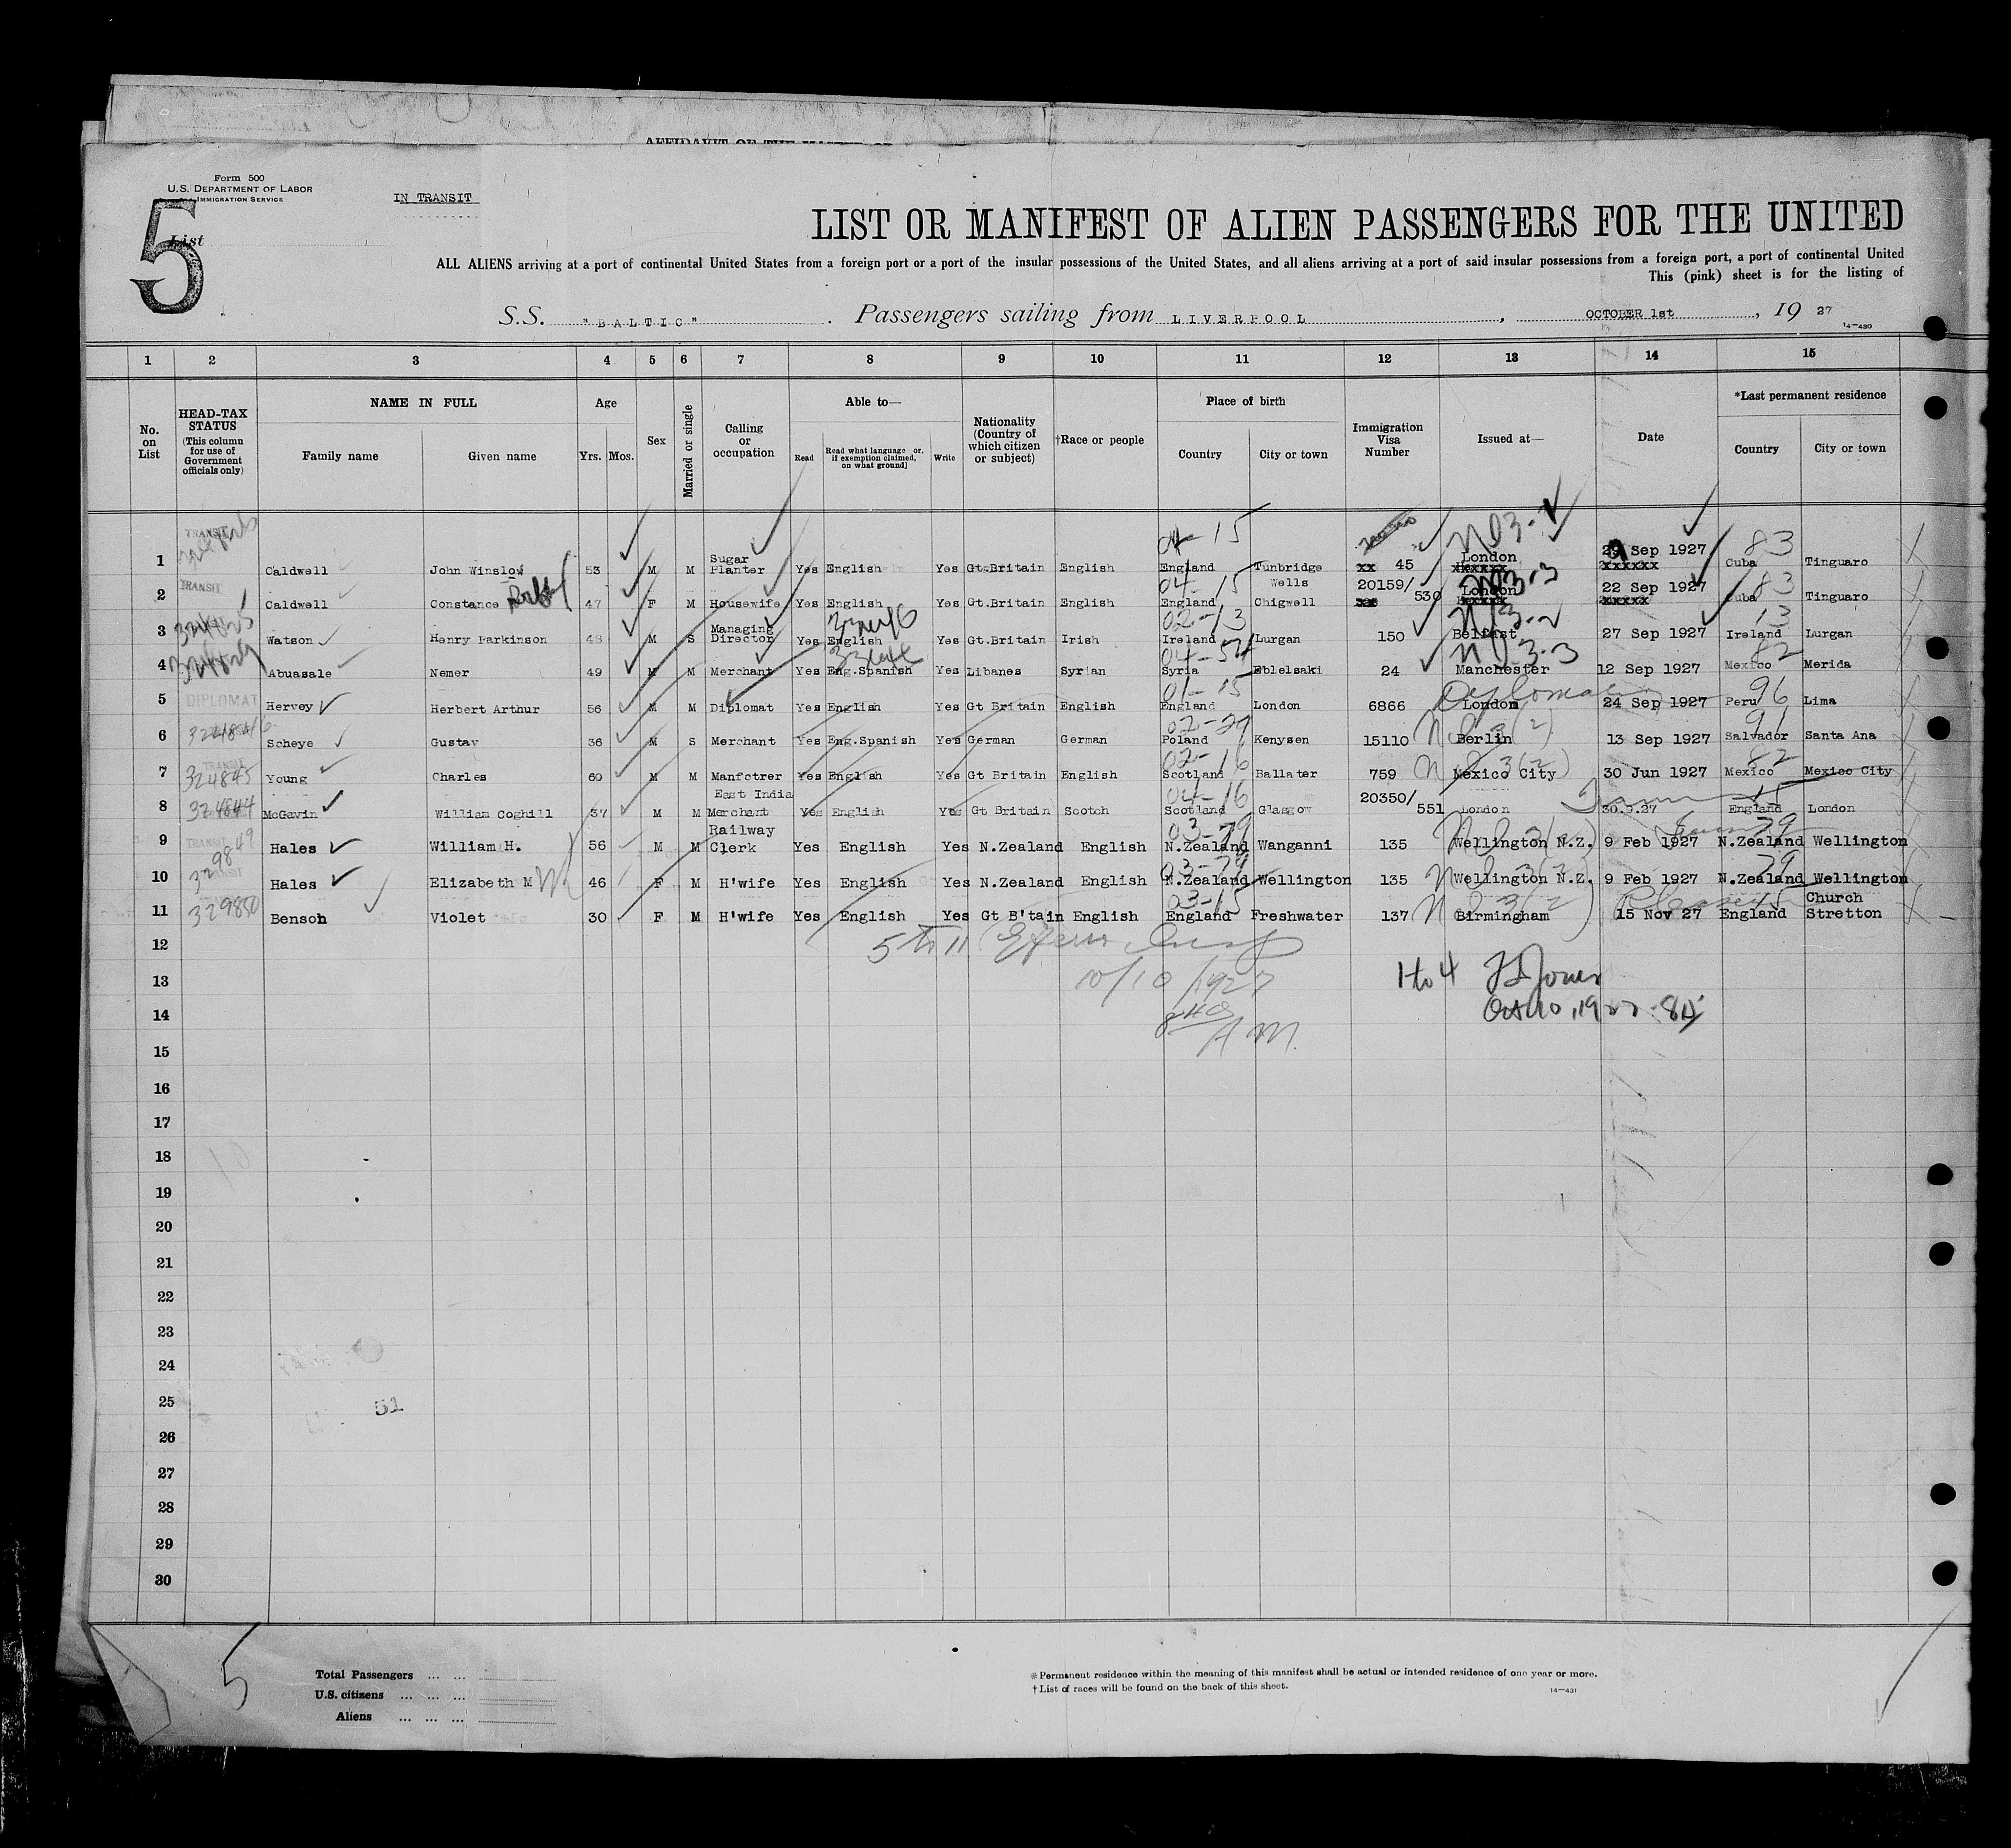 AFFIDAVIT OF THE MASTER OR
Form 500
U.S. DEPARTMENT OF LABOR
IMMIGRATION SERVICE
IN TRANSIT
5
List
LIST OR MANIFEST OF ALIEN PASSENGERS FOR THE UNITED
ALL ALIENS arriving at a port of continental United States from a foreign port or a port of the insular possessions of the United States, and all aliens arriving at a port of said insular possessions from a foreign port, a port of continental United
This (pink) sheet is for the listing of
S.S. "BALTIC" . Passengers sailing from LIVERPOOL , OCTOBER 1st , 19 27
14—430
1 2 3 4 5 6 7 8 9 10 11 12 13 14 15
No. on List
HEAD-TAX STATUS (This column for use of Government officials only)
NAME IN FULL
Family name Given name
Age Yrs. Mos.
Sex
Married or single
Calling or occupation
Able to—
Read Read what language or, if exemption claimed, on what ground] Write
Nationality (Country of which citizen or subject)
†Race or people
Place of birth
Country City or town
Immigration Visa Number
Issued at—
Date
*Last permanent residence
Country City or town
1 TRANSIT Caldwell John Winslow 53 M M Sugar Planter Yes English Yes Gt.Britain English 04-15 England Tunbridge Wells xx 45 N03-V London xxxxxx 29 Sep 1927 xxxxxx 83 Cuba Tinguaro
2 TRANSIT Caldwell Constance Ruby 47 F M Housewife Yes English Yes Gt.Britain English 04-15 England Chigwell 20159/ xx 530 N03-3 London xxxxx 22 Sep 1927 xxxxx 83 Cuba Tinguaro
3 Watson Henry Parkinson 48 M S Managing Director Yes English Yes Gt.Britain Irish 02-13 Ireland Lurgan 150 Belfast 27 Sep 1927 13 Ireland Lurgan
4 Abuasale Nemer 49 M M Merchant Yes Eng.Spanish Yes Libanes Syrian Syria Eblelsaki 24 N03-3 Manchester 12 Sep 1927 82 Mexico Merida
5 DIPLOMAT Hervey Herbert Arthur 56 M M Diplomat Yes English Yes Gt Britain English 01-15 England London 6866 Diplomatic London 24 Sep 1927 96 Peru Lima
6 Scheye Gustav 36 M S Merchant Yes Eng.Spanish Yes German German Poland Kenysen 15110 Berlin 13 Sep 1927 91 Salvador Santa Ana
7 TRANSIT 324845 Young Charles 60 M M Manfctrer Yes English Yes Gt Britain English 02-16 Scotland Ballater 759 Mexico City 30 Jun 1927 82 Mexico Mexico City
8 324844 McGavin William Coghill 37 M M East India Merchant Yes English Yes Gt Britain Scotch 04-16 Scotland Glasgow 20350/ 551 London 30.9.27 15 England London
9 TRANSIT Hales William H. 56 M M Railway Clerk Yes English Yes N.Zealand English 03-79 N.Zealand Wanganni 135 Wellington N.Z. 9 Feb 1927 79 N.Zealand Wellington
10 Hales Elizabeth M 46 F M H'wife Yes English Yes N.Zealand English 03-79 N.Zealand Wellington 135 Wellington N.Z. 9 Feb 1927 79 N.Zealand Wellington
11 329850 Benson Violet 30 F M H'wife Yes English Yes Gt B'tain English 03-15 England Freshwater 137 Birmingham 15 Nov 27 15 England Church Stretton
12 5 to 11
13 10/10/1927 1 to 4
14 8 40 A M. Oct 10, 1927
15
16
17
18
19
20
21
22
23
24
25 51
26
27
28
29
30
5
Total Passengers ... ...
U.S. citizens ... ... ...
Aliens ... ... ...
*Permanent residence within the meaning of this manifest shall be actual or intended residence of one year or more.
† List of races will be found on the back of this sheet.
14—431